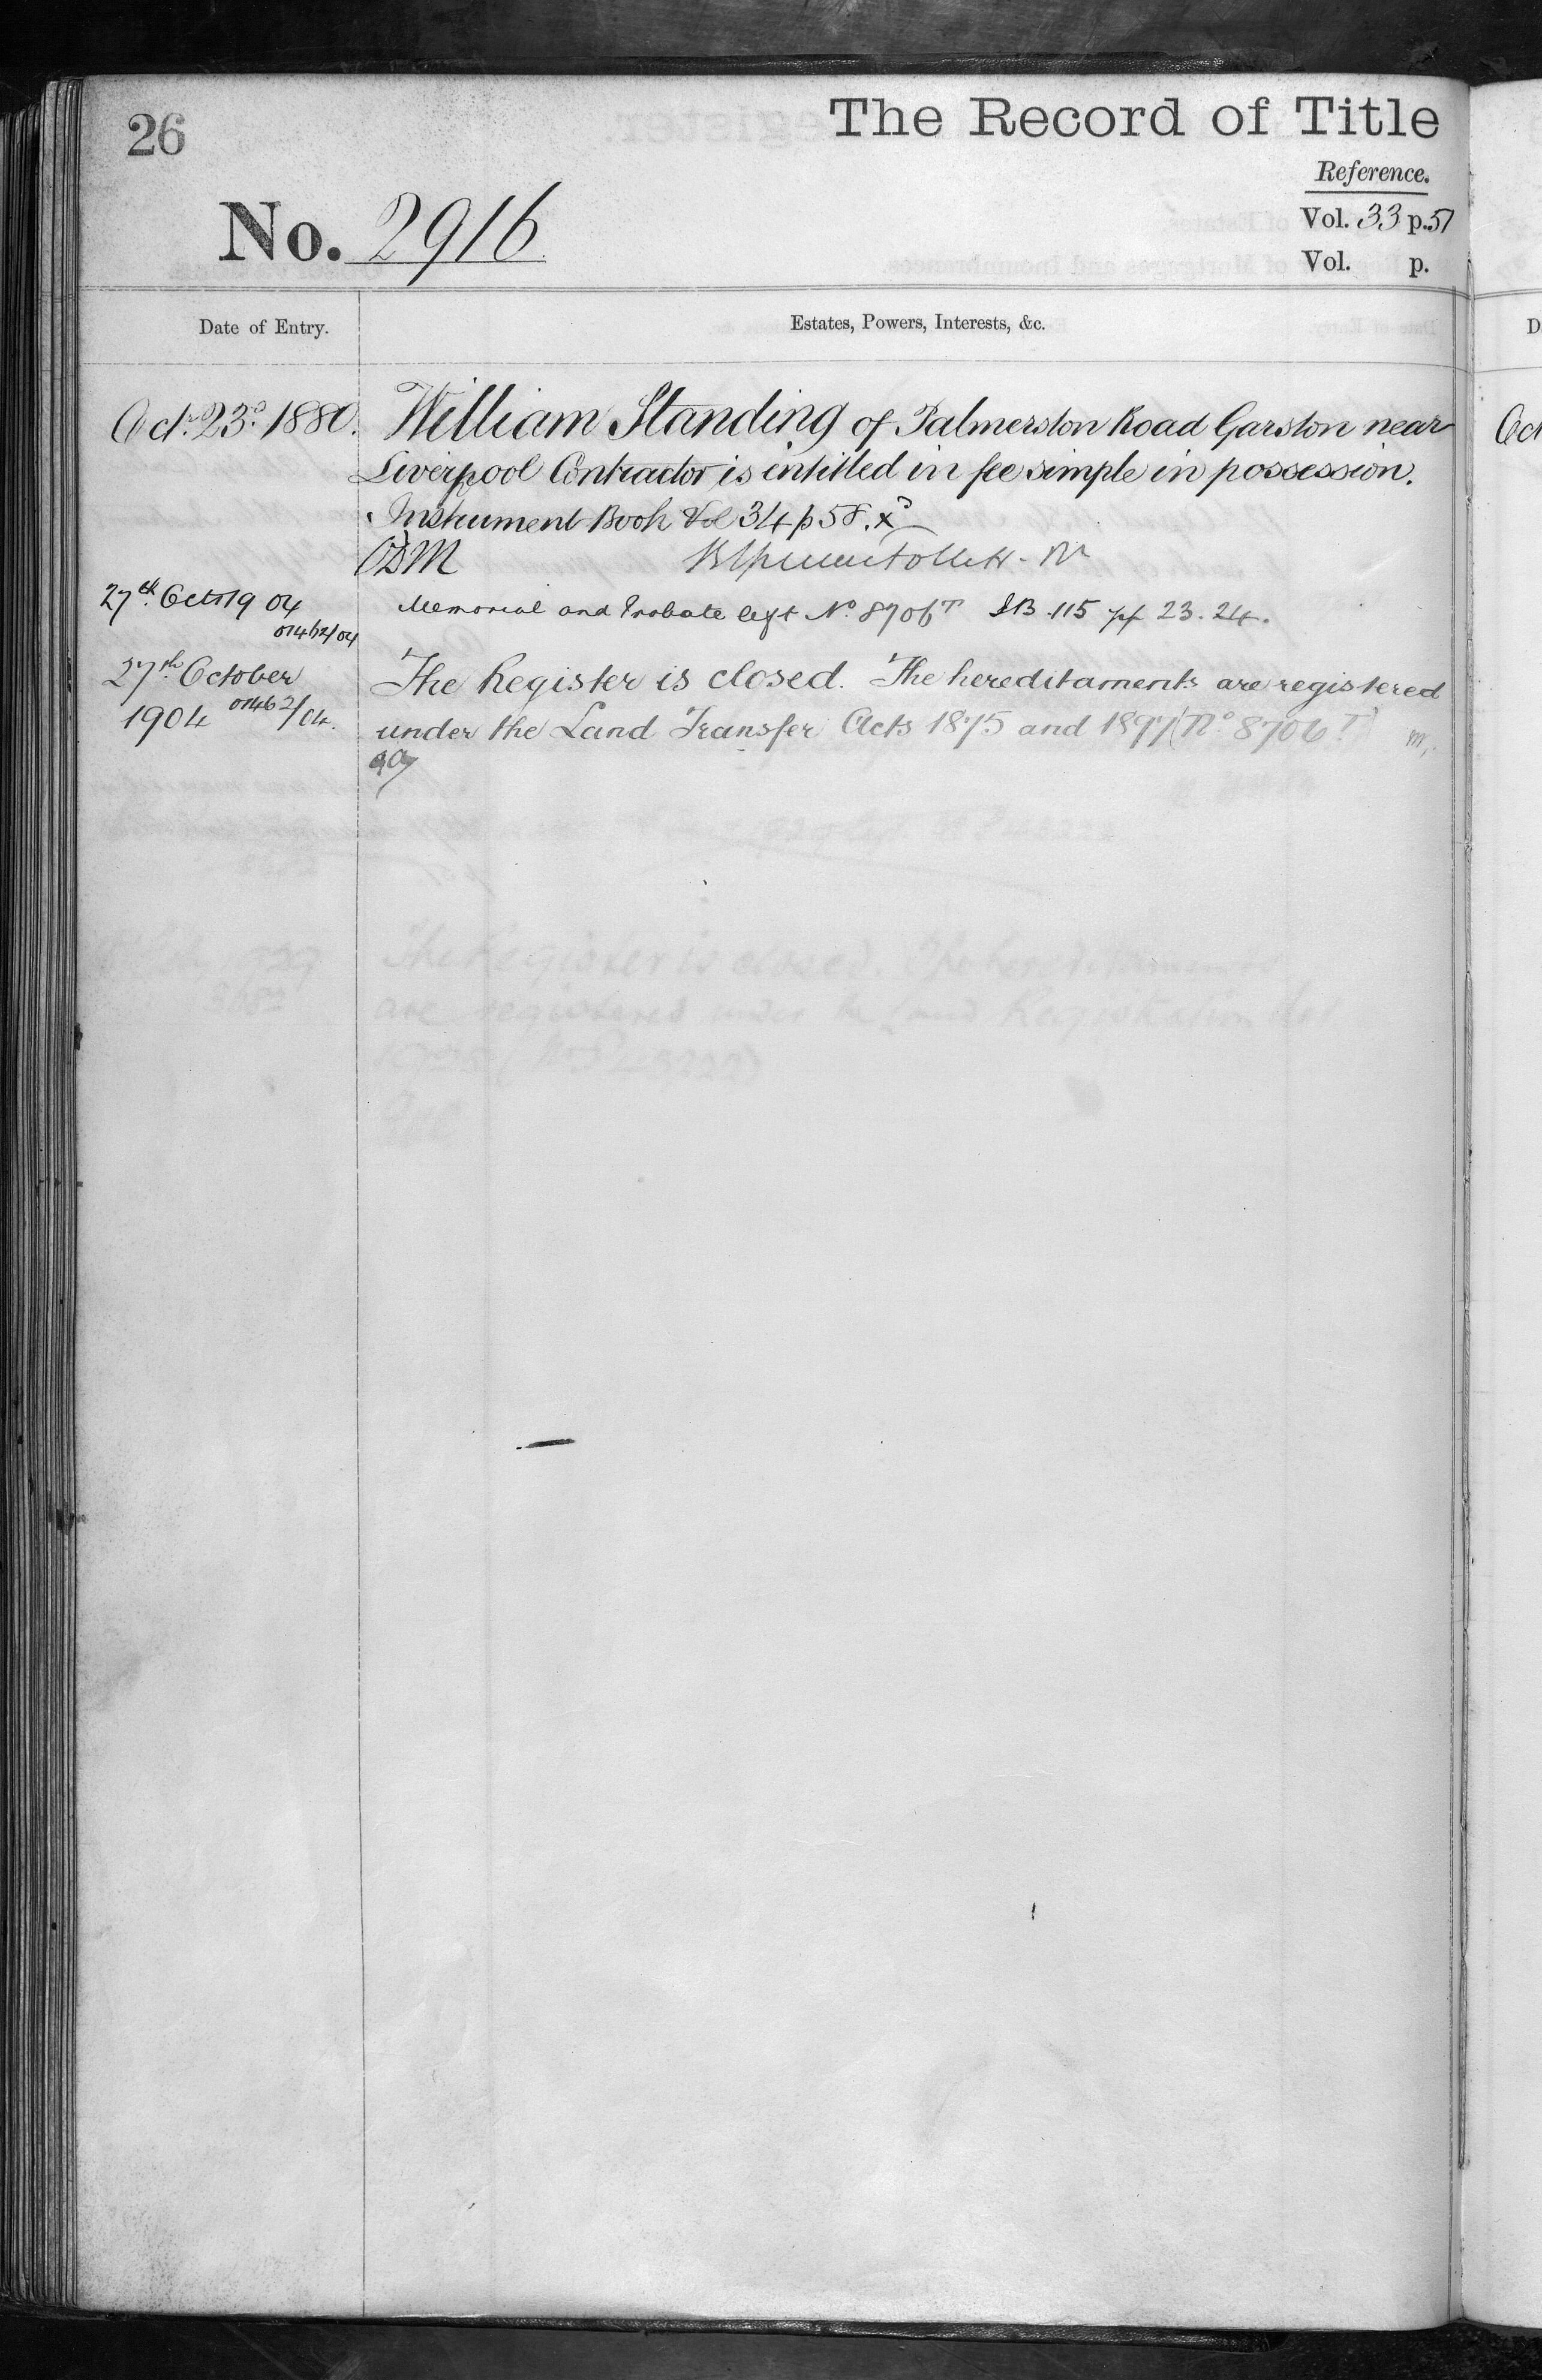 26
The Record of Title
Reference.
No. 2916
Vol. 33 p. 51
Vol. p.
Date of Entry.
Estates, Powers, Interests, &c.
Octr. 23d. 1880. William Standing of Palmerston Road Garston near
Liverpool Contractor is intitled in fee simple in possession.
Instrument Book Vol 34 p 58.
27th Octr 1904 Memorial and Probate left No. 8706T IB 115 pp 23. 24.
01462/04
27th October The Register is closed. The hereditaments are registered
1904 01462/04. under the Land Transfer Acts 1875 and 1897 (No 8706T)